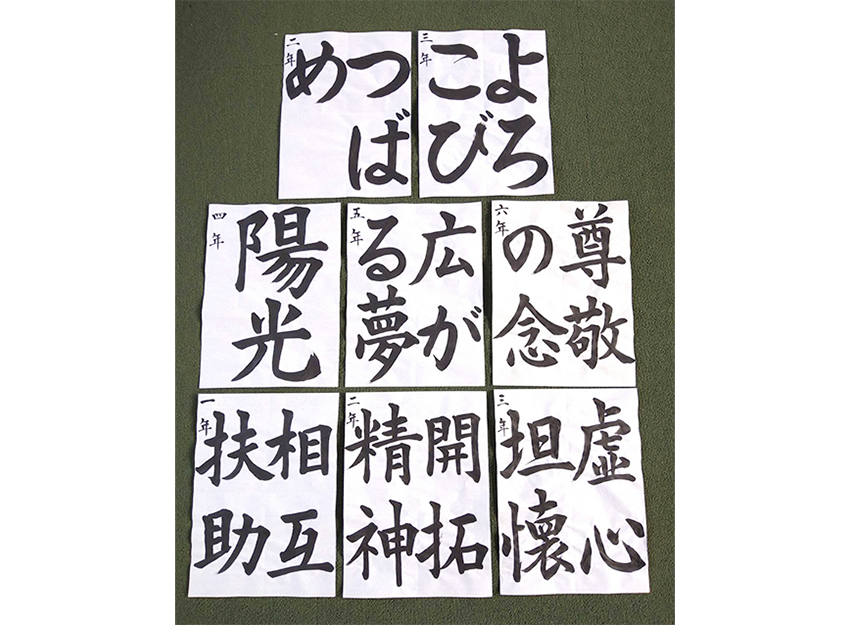 二年
つば
め
三年
よろ
こび
四年
陽光
五年
広が
る夢
六年
尊敬
の念
一年
相互
扶助
二年
開拓
精神
三年
虚心
坦懐